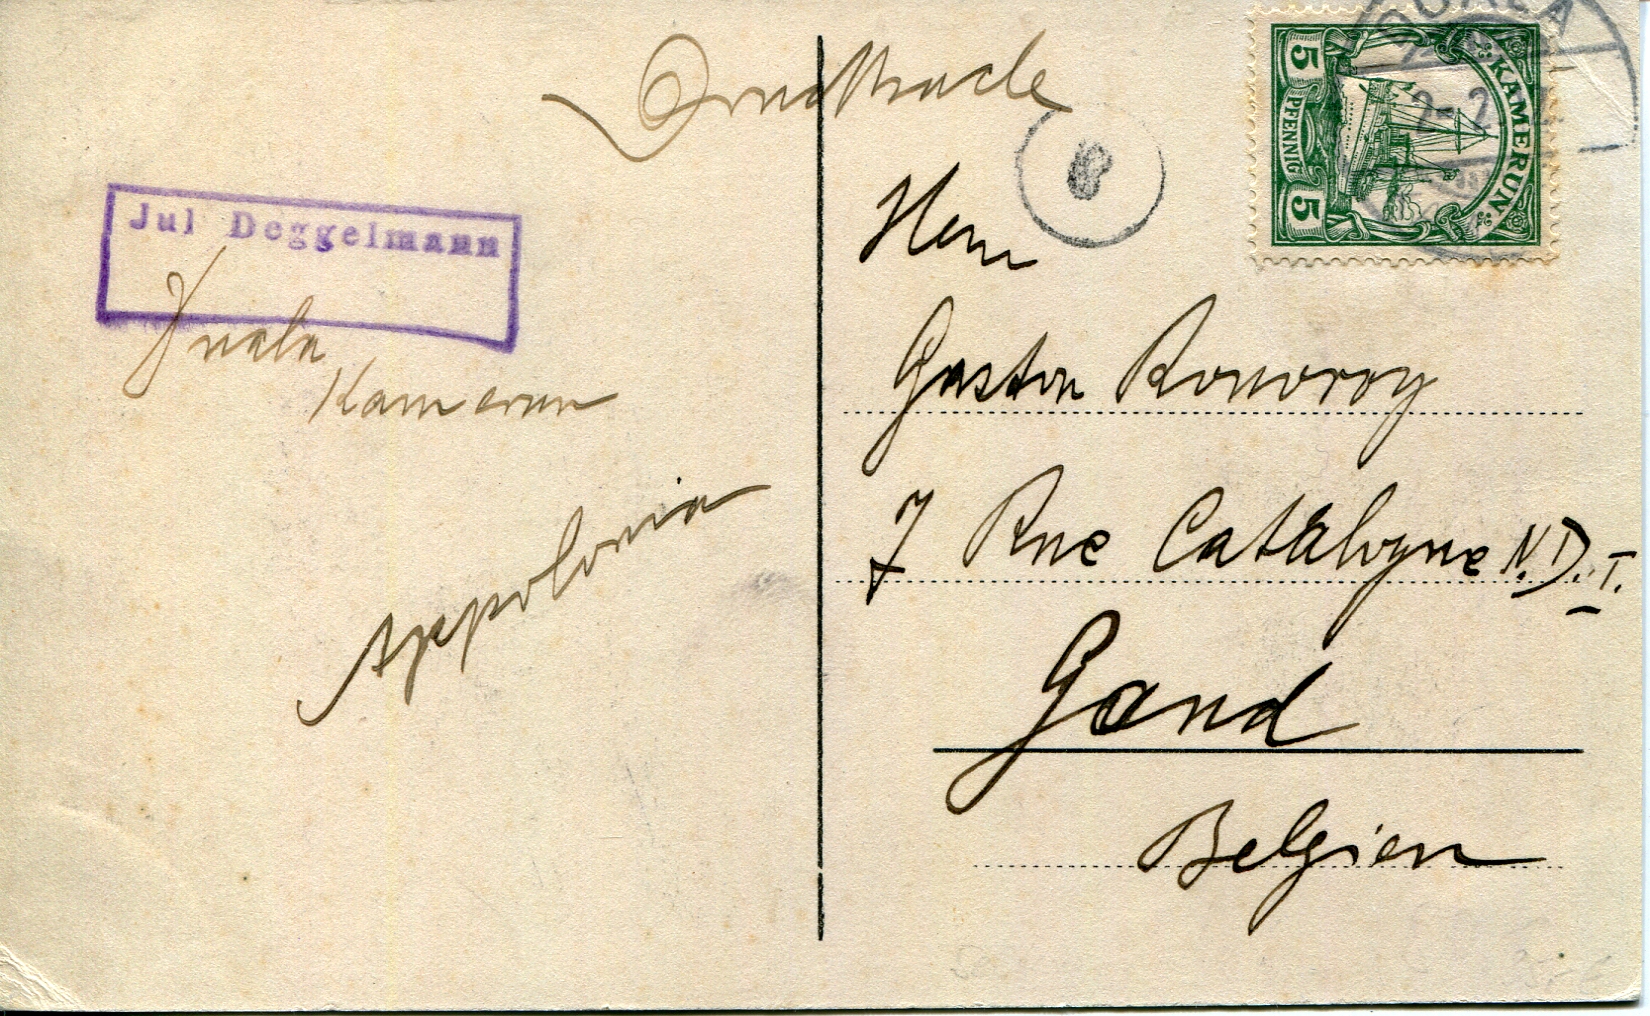 Drucksache
DUALA
KAMERUN
5 PFENNIG 5
Jul Deggelmann
Duala
Kamerun
Appolonia
Herrn
Gaston
7 Rue Catalogne N.D.I.
Gand
Belgien